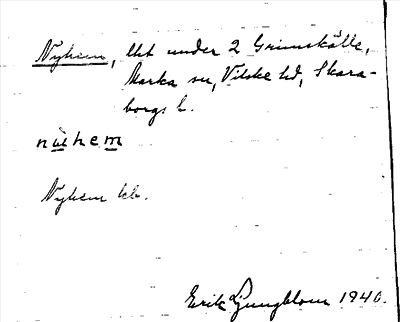 Nyhem, lht under 2 Grimskälle,
Marka sn, Vilske hd, Skara-
borgs l.
nùhem
Nyhem kb.
Erik Ljungblom 1940.